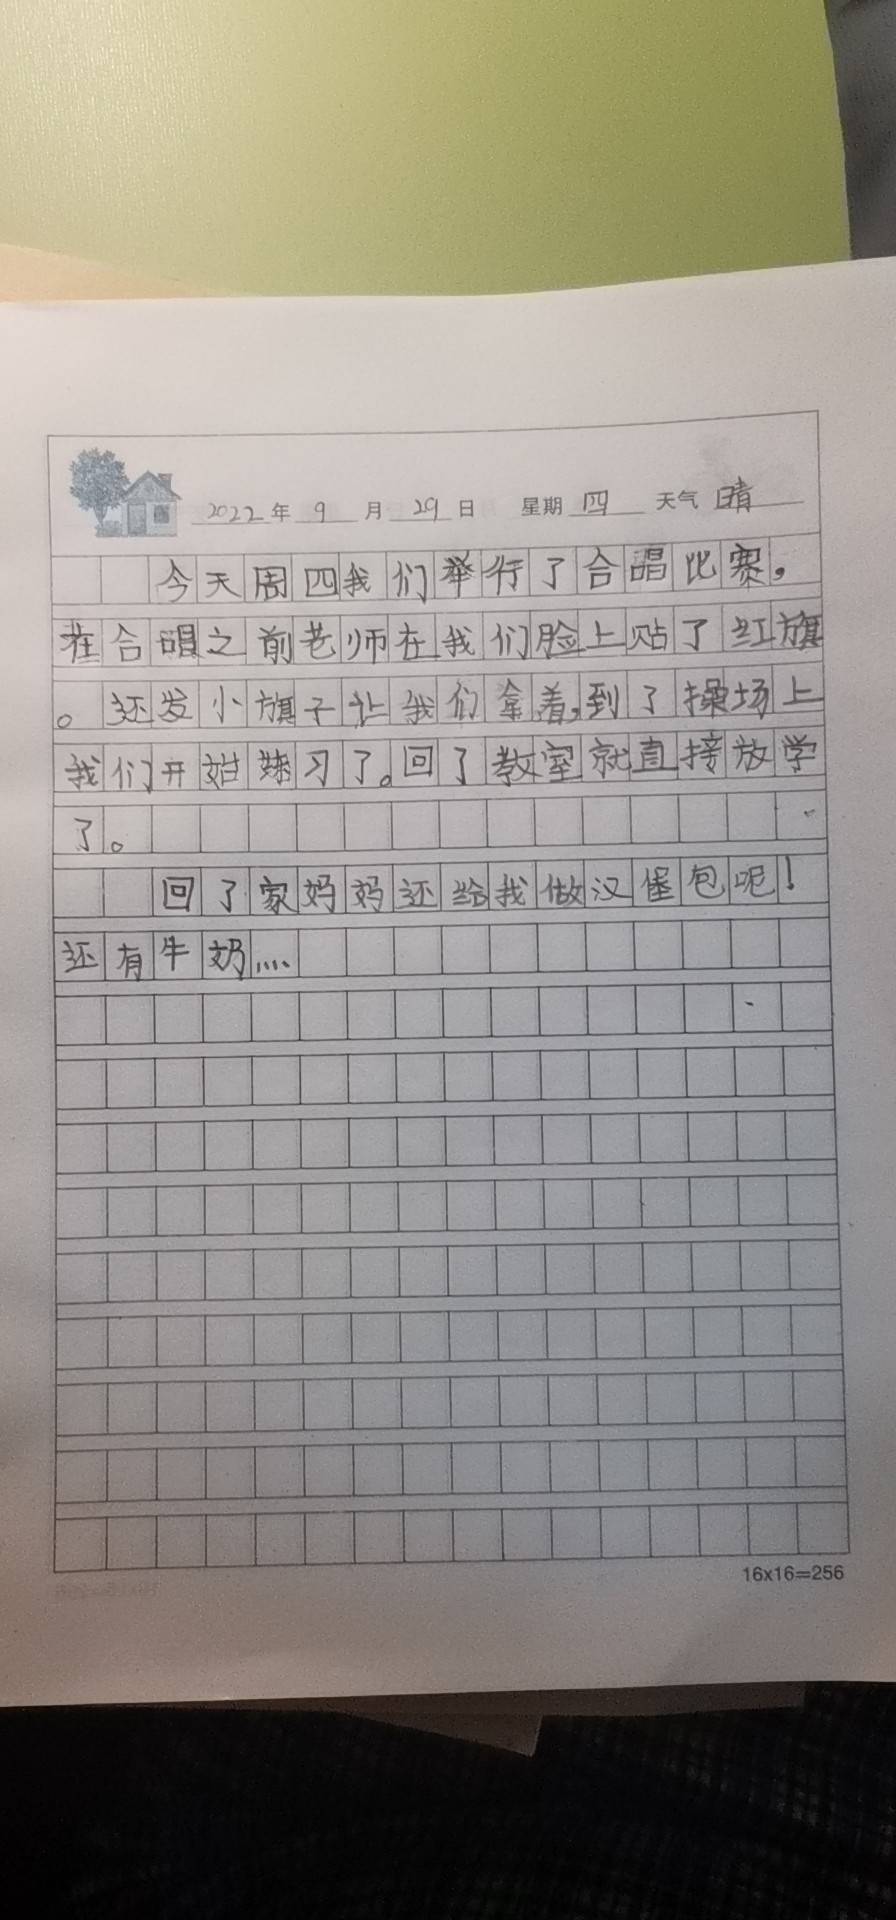 2022年 9 月 29 日 星期 四 天气 晴
今天周四我们举行了合唱比赛,
在合唱之前老师在我们脸上贴了红旗
。还发小旗子让我们拿着,到了操场上
我们开始练习了。回了教室就直接放学
了。
回了家妈妈还给我做汉堡包呢!
还有牛奶....
16x16=256